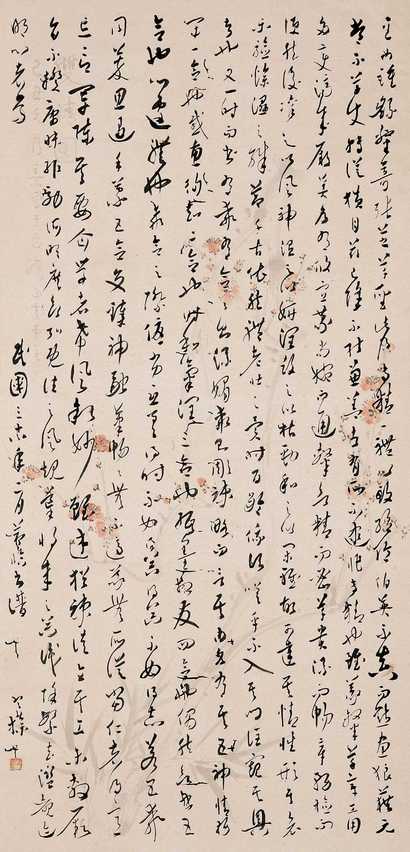 至如鍾繇隸奇張芝草聖此乃專精一體以致絕倫伯英不真而點畫狼藉元
常不草使轉縱橫自茲已降不能兼善者有所不逮非專精也雖篆隸草章工用
多變濟成厥美各有攸宜篆尚婉而通隸欲精而密草貴流而暢章務檢而
便然後凜之以風神溫之以妍潤鼓之以枯勁和之以閑雅故可達其情性形其哀
樂驗燥濕之殊節千古依然體老壯之異時百齡俄頃嗟乎不入其門詎窺其奧
者也又一時而書有乖有合合則流媚乖則雕疏略而言其由各有其五神怡務
閑一合也感惠徇知二合也時和氣潤三合也紙墨相發四合也偶然欲書五
合也心遽體也乖合之際優劣互差得時不如得器得器不如得志若五乖
同萃思遏手蒙五合交臻神融筆暢暢無不適蒙無所從當仁者得意
忘言罕陳其要企學者希風敘妙雖述猶疏徒立其工未敷厥
旨不揆庸昧輒效所明庶欲弘既往之風規導將來之器識除繁去濫睹跡
明心者焉
民國三年一月節臨書譜